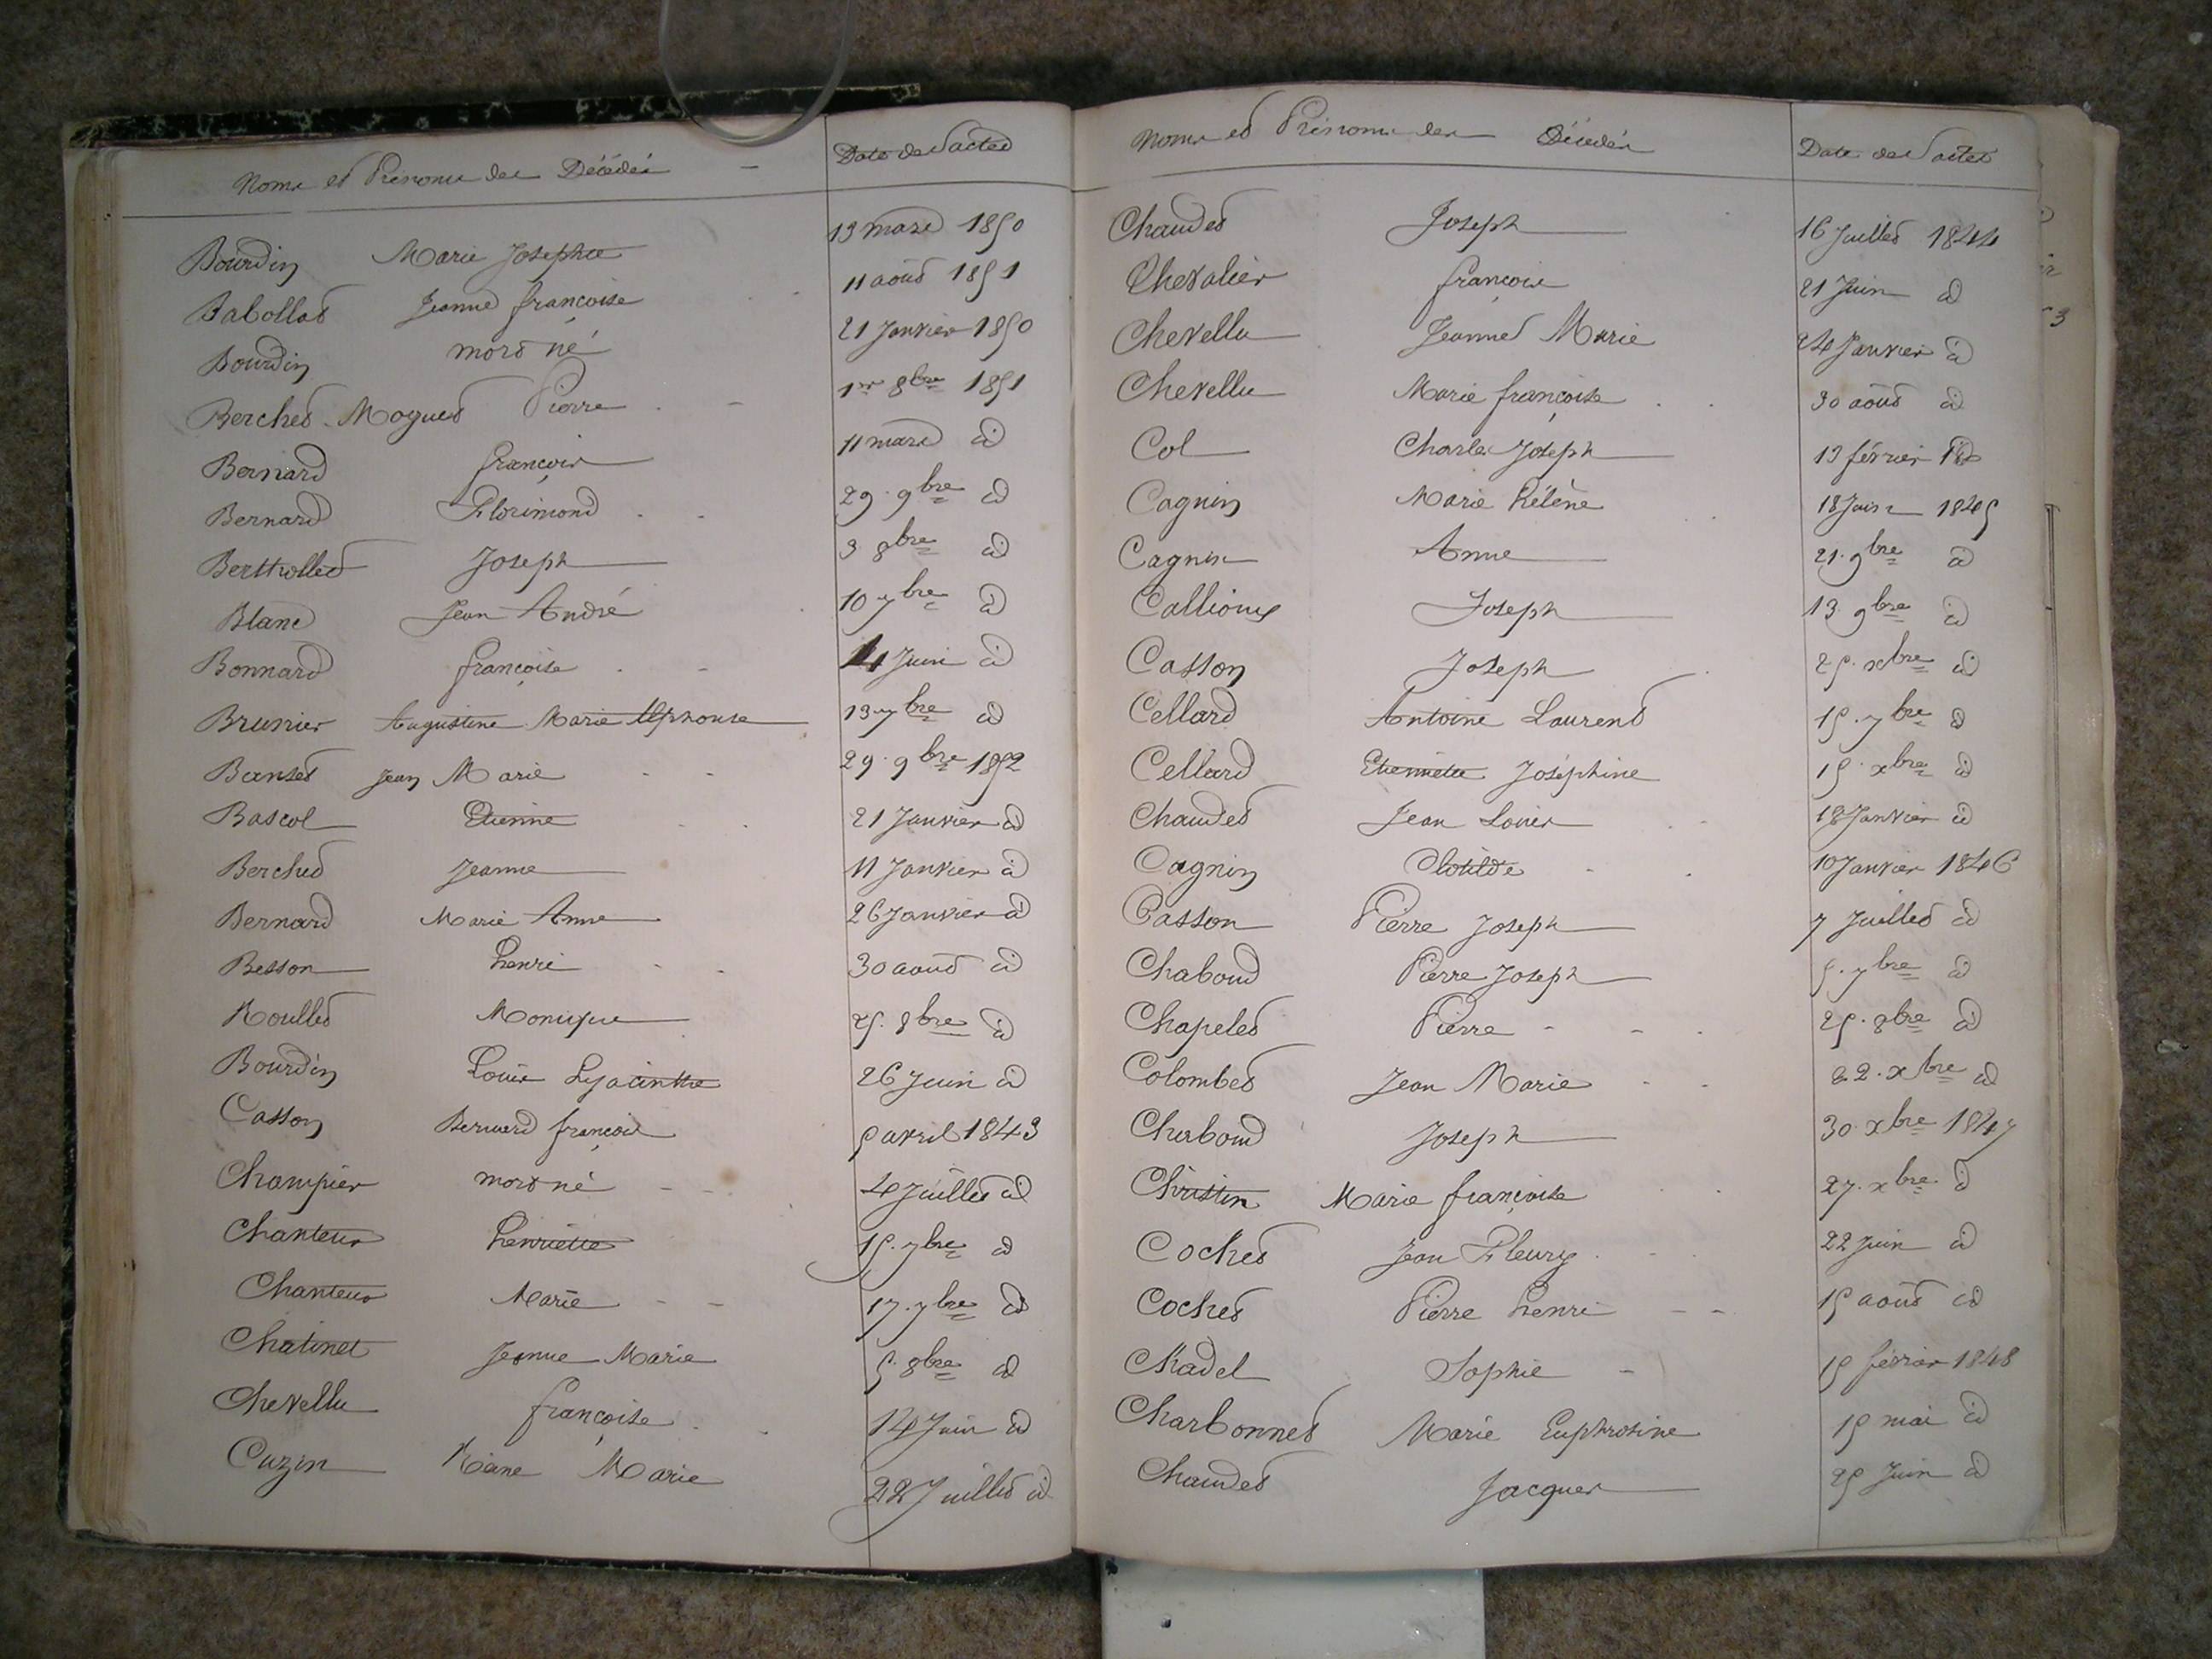 Noms et Prénoms des Décédés — Date des actes
Bourdin Marie Josephte 13 mars 1850
Babollat Jeanne françoise 11 août 1851
Bourdin mort né 21 Janvier 1850
Berchet-Moguet Pierre 1er 8bre 1851
Bernard françois 11 mars id
Bernard Florimond 29. 9bre id
Berthollet Joseph 3 8bre id
Blanc Jean André 10 7bre id
Bonnard françoise 11 Juin id
Brunier Augustine Marie Alphonse 13 7bre id
Banset Jean Marie 29. 9bre 1852
Bascol Etienne 21 Janvier id
Berchet Jeanne 11 Janvier id
Bernard Marie Anne 26 Janvier id
Besson henri 30 août id
Roullet Monique 25. 8bre id
Bourdin Louis Hyacinthe 26 Juin id
Casson Bernard françois 5 avril 1843
Champier mort né 4 Juillet id
Chanteur henriette 15. 7bre id
Chanteur Marie 17. 7bre id
Chatinet Jeanne Marie 5. 8bre id
Chevellu françoise 14 Juin id
Cuzin Reine Marie 22 Juillet id
Noms et Prénoms des Décédés Date des actes
Chaudet Joseph 16 Juillet 1844
Chevalier françois 21 Juin id
Chevellu Jeanne Marie 24 Janvier id
Chevellu Marie françoise 30 août id
Col Charles Joseph 13 février id
Cagnin Marie hélène 18 Juin 1845
Cagnin Anne 21. 9bre id
Callioux Joseph 13. 9bre id
Casson Joseph 25. xbre id
Cellard Antoine Laurent 15. 7bre id
Cellard Etiennette Joséphine 15. xbre id
Chaudet Jean Louis 18 Janvier id
Cagnin Clotilde 10 Janvier 1846
Casson Pierre Joseph 7 Juillet id
Chaboud Pierre Joseph 5. 7bre id
Chapelet Pierre 25. 8bre id
Colombet Jean Marie 22. xbre id
Chaboud Joseph 30. xbre 1847
Christin Marie françoise 27. xbre id
Cochet Jean Fleury 22 Juin id
Cochet Pierre henri 15 août id
Chadel Sophie 15 février 1848
Charbonnet Marie Euphrosine 15 mai id
Chaudet Jacques 25 Juin id